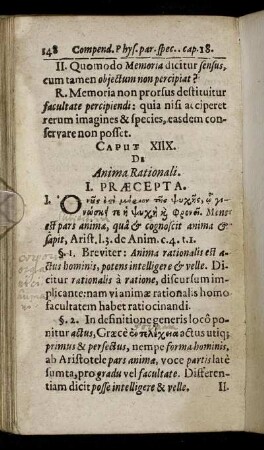 148 Compend. Phys. par. spec.. cap. 18.
II. Quomodo Memoria dicitur sensus,
cum tamen objectum non percipiat?
R. Memoria non prorsus destituitur
facultate percipiendi: quia nisi acciperet
rerum imagines & species, easdem con-
servare non posset.
CAPUT XIIX.
DE
Anima Rationali.
I. PRÆCEPTA.
I. Ο νῦς ἐστὶ μόριον τῆς ψυχῆς, ᾧ γι-
νώσκει τε ἡ ψυχὴ κ̀ φρονεῖ. Mens
est pars animæ, quâ & cognoscit anima &
sapit, Arist. l. 3. de Anim. c. 4. t. 1.
§. 1. Breviter: Anima rationalis est a-
ctus hominis, potens intelligere & velle. Di-
citur rationalis à ratione, discursum
implicante: nam vi animæ rationalis homo
facultatem habet ratiocinandi.
§. 2. In definitione generis locô po-
nitur actus, Græcè ἐντελέχεια actus utiq;
primus & perfectus, nempe forma hominis,
ab Aristotele pars animæ, voce partis latè
sumta, pro gradu vel facultate. Differen-
tiam dicit posse intelligere & velle. II.